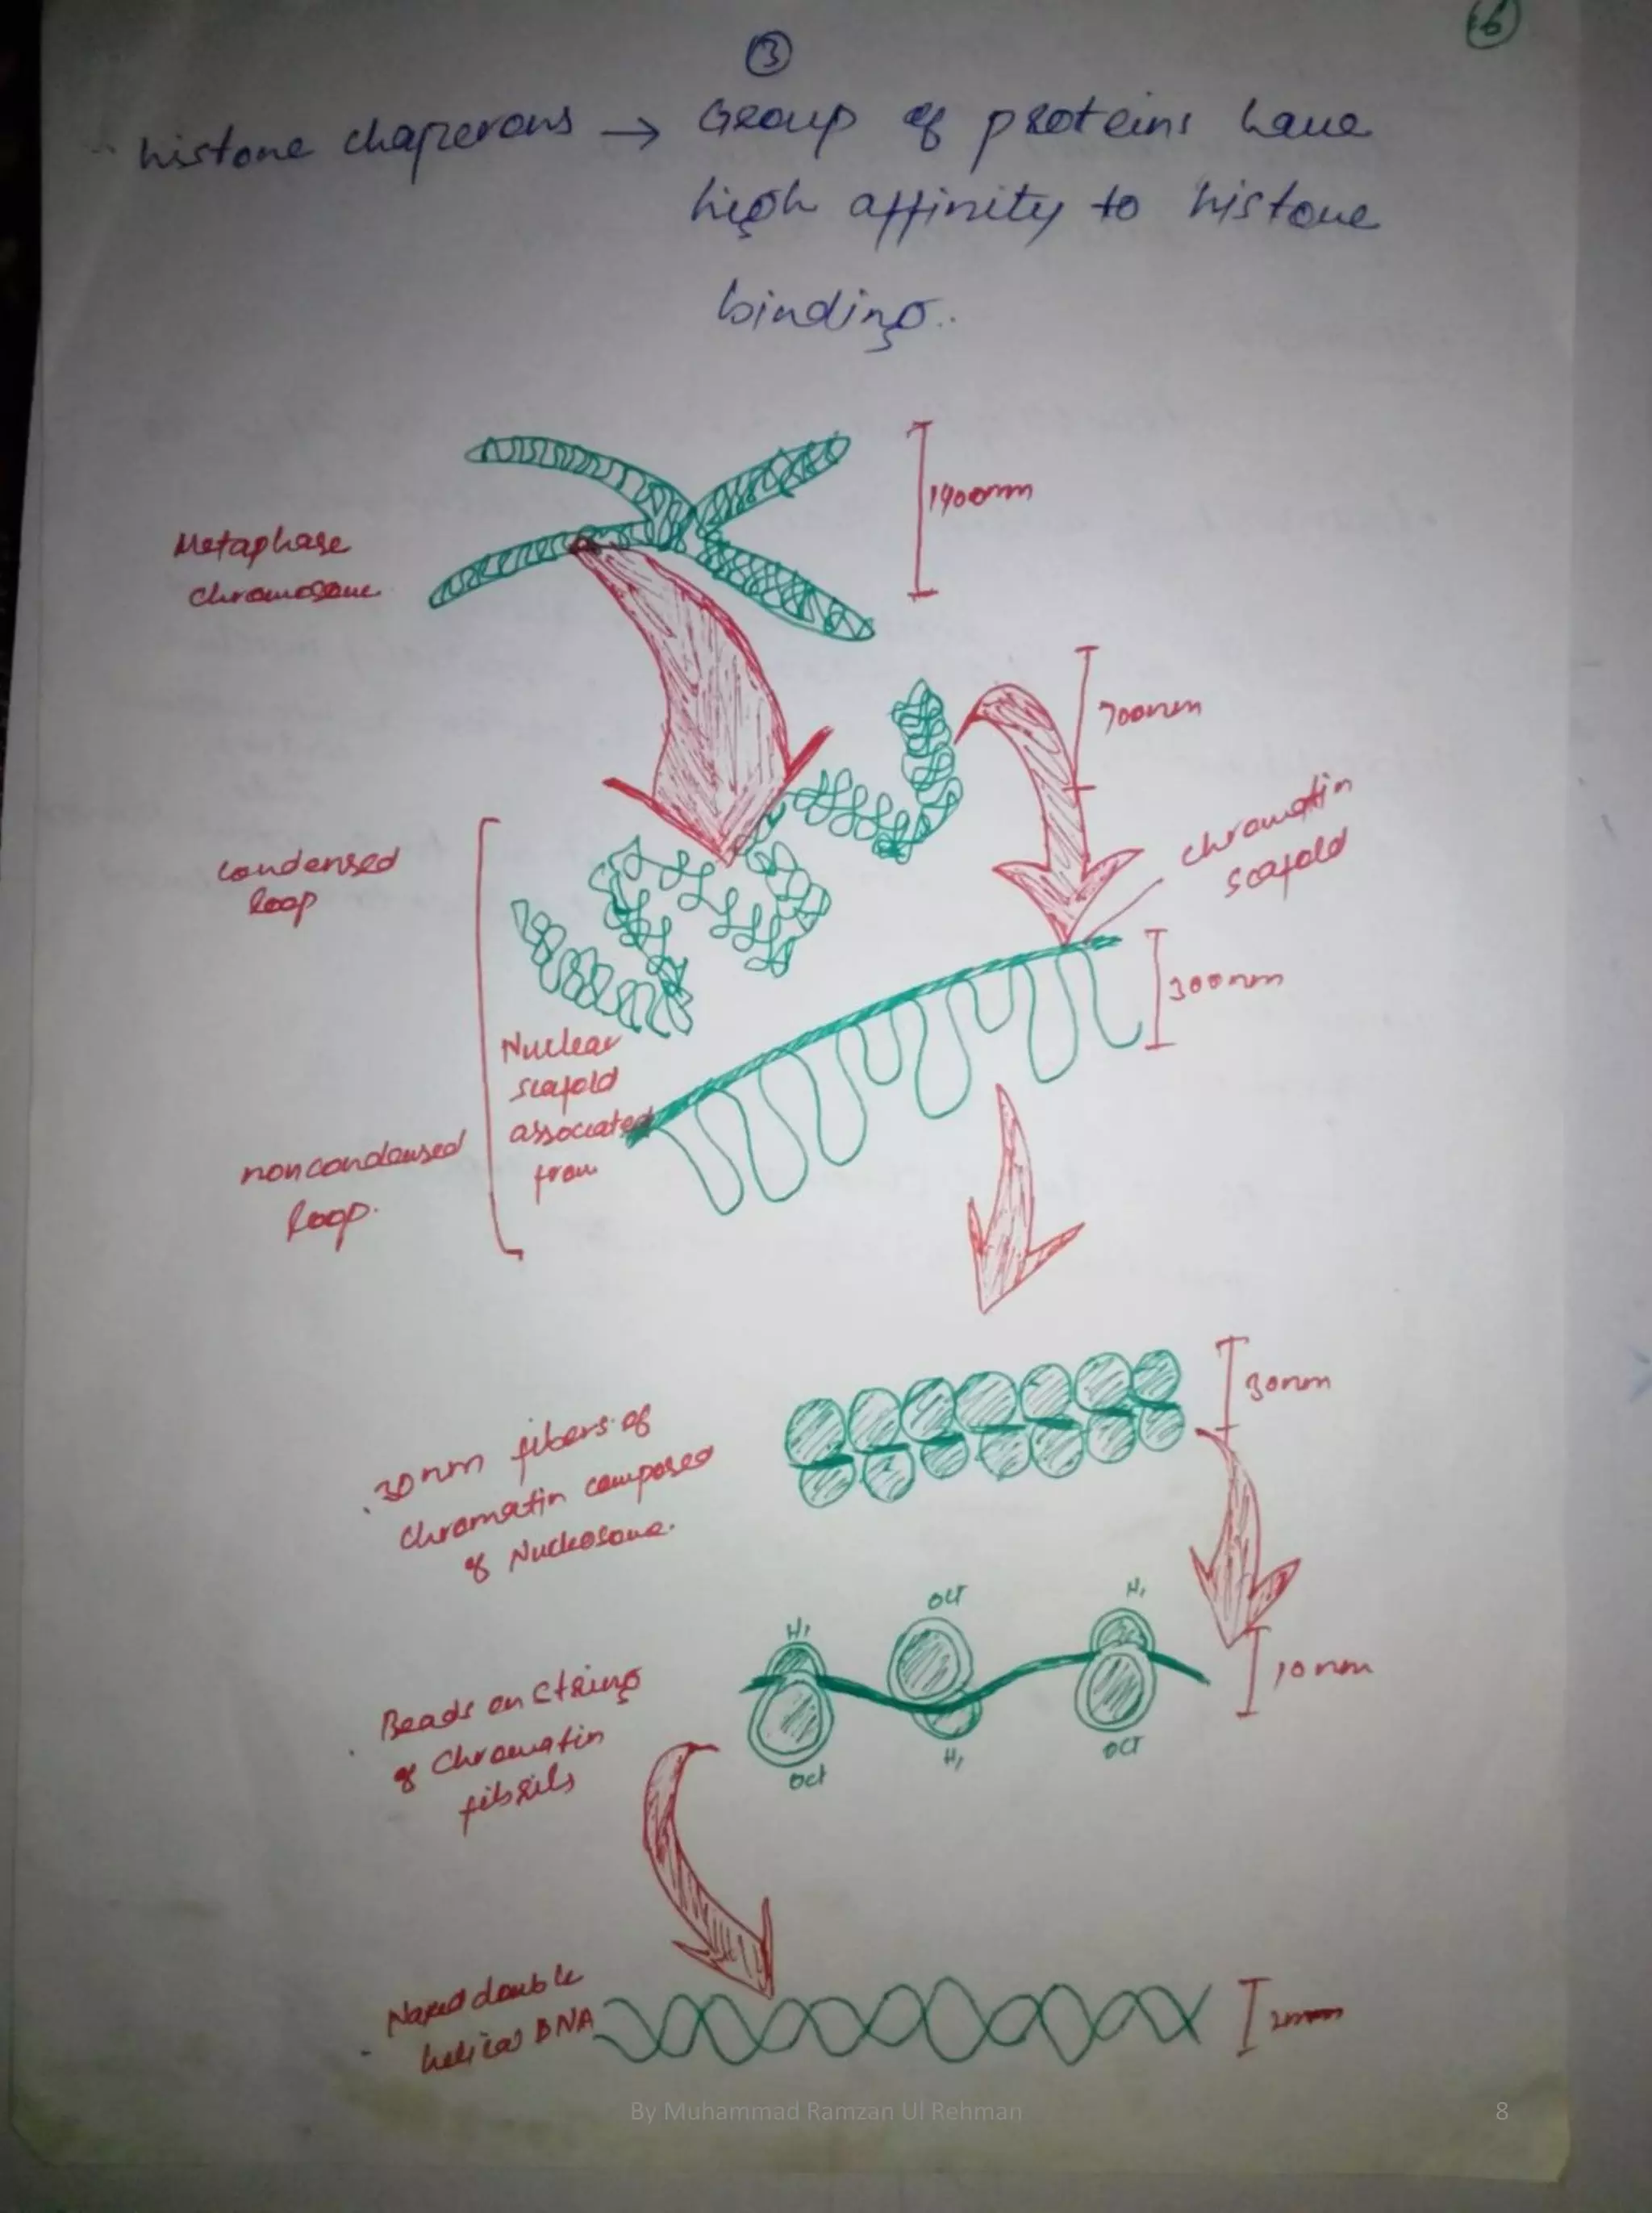 6
3
histone chaperons → Group of proteins have
high affinity to histone
binding.
1400nm
Metaphase
chromosome
700nm
chromatin
scafold
condensed
loop
300nm
Nuclear
scafold
associated
from
noncondensed
loop.
30nm
30nm fibers of
chromatin composed
of Nucleosome.
H1
OCT
H1
10 nm
Beads on String
of Chromatin
fibrils
Oct
H1
OCT
Naked double
helical DNA
2nm
By Muhammad Ramzan Ul Rehman
8